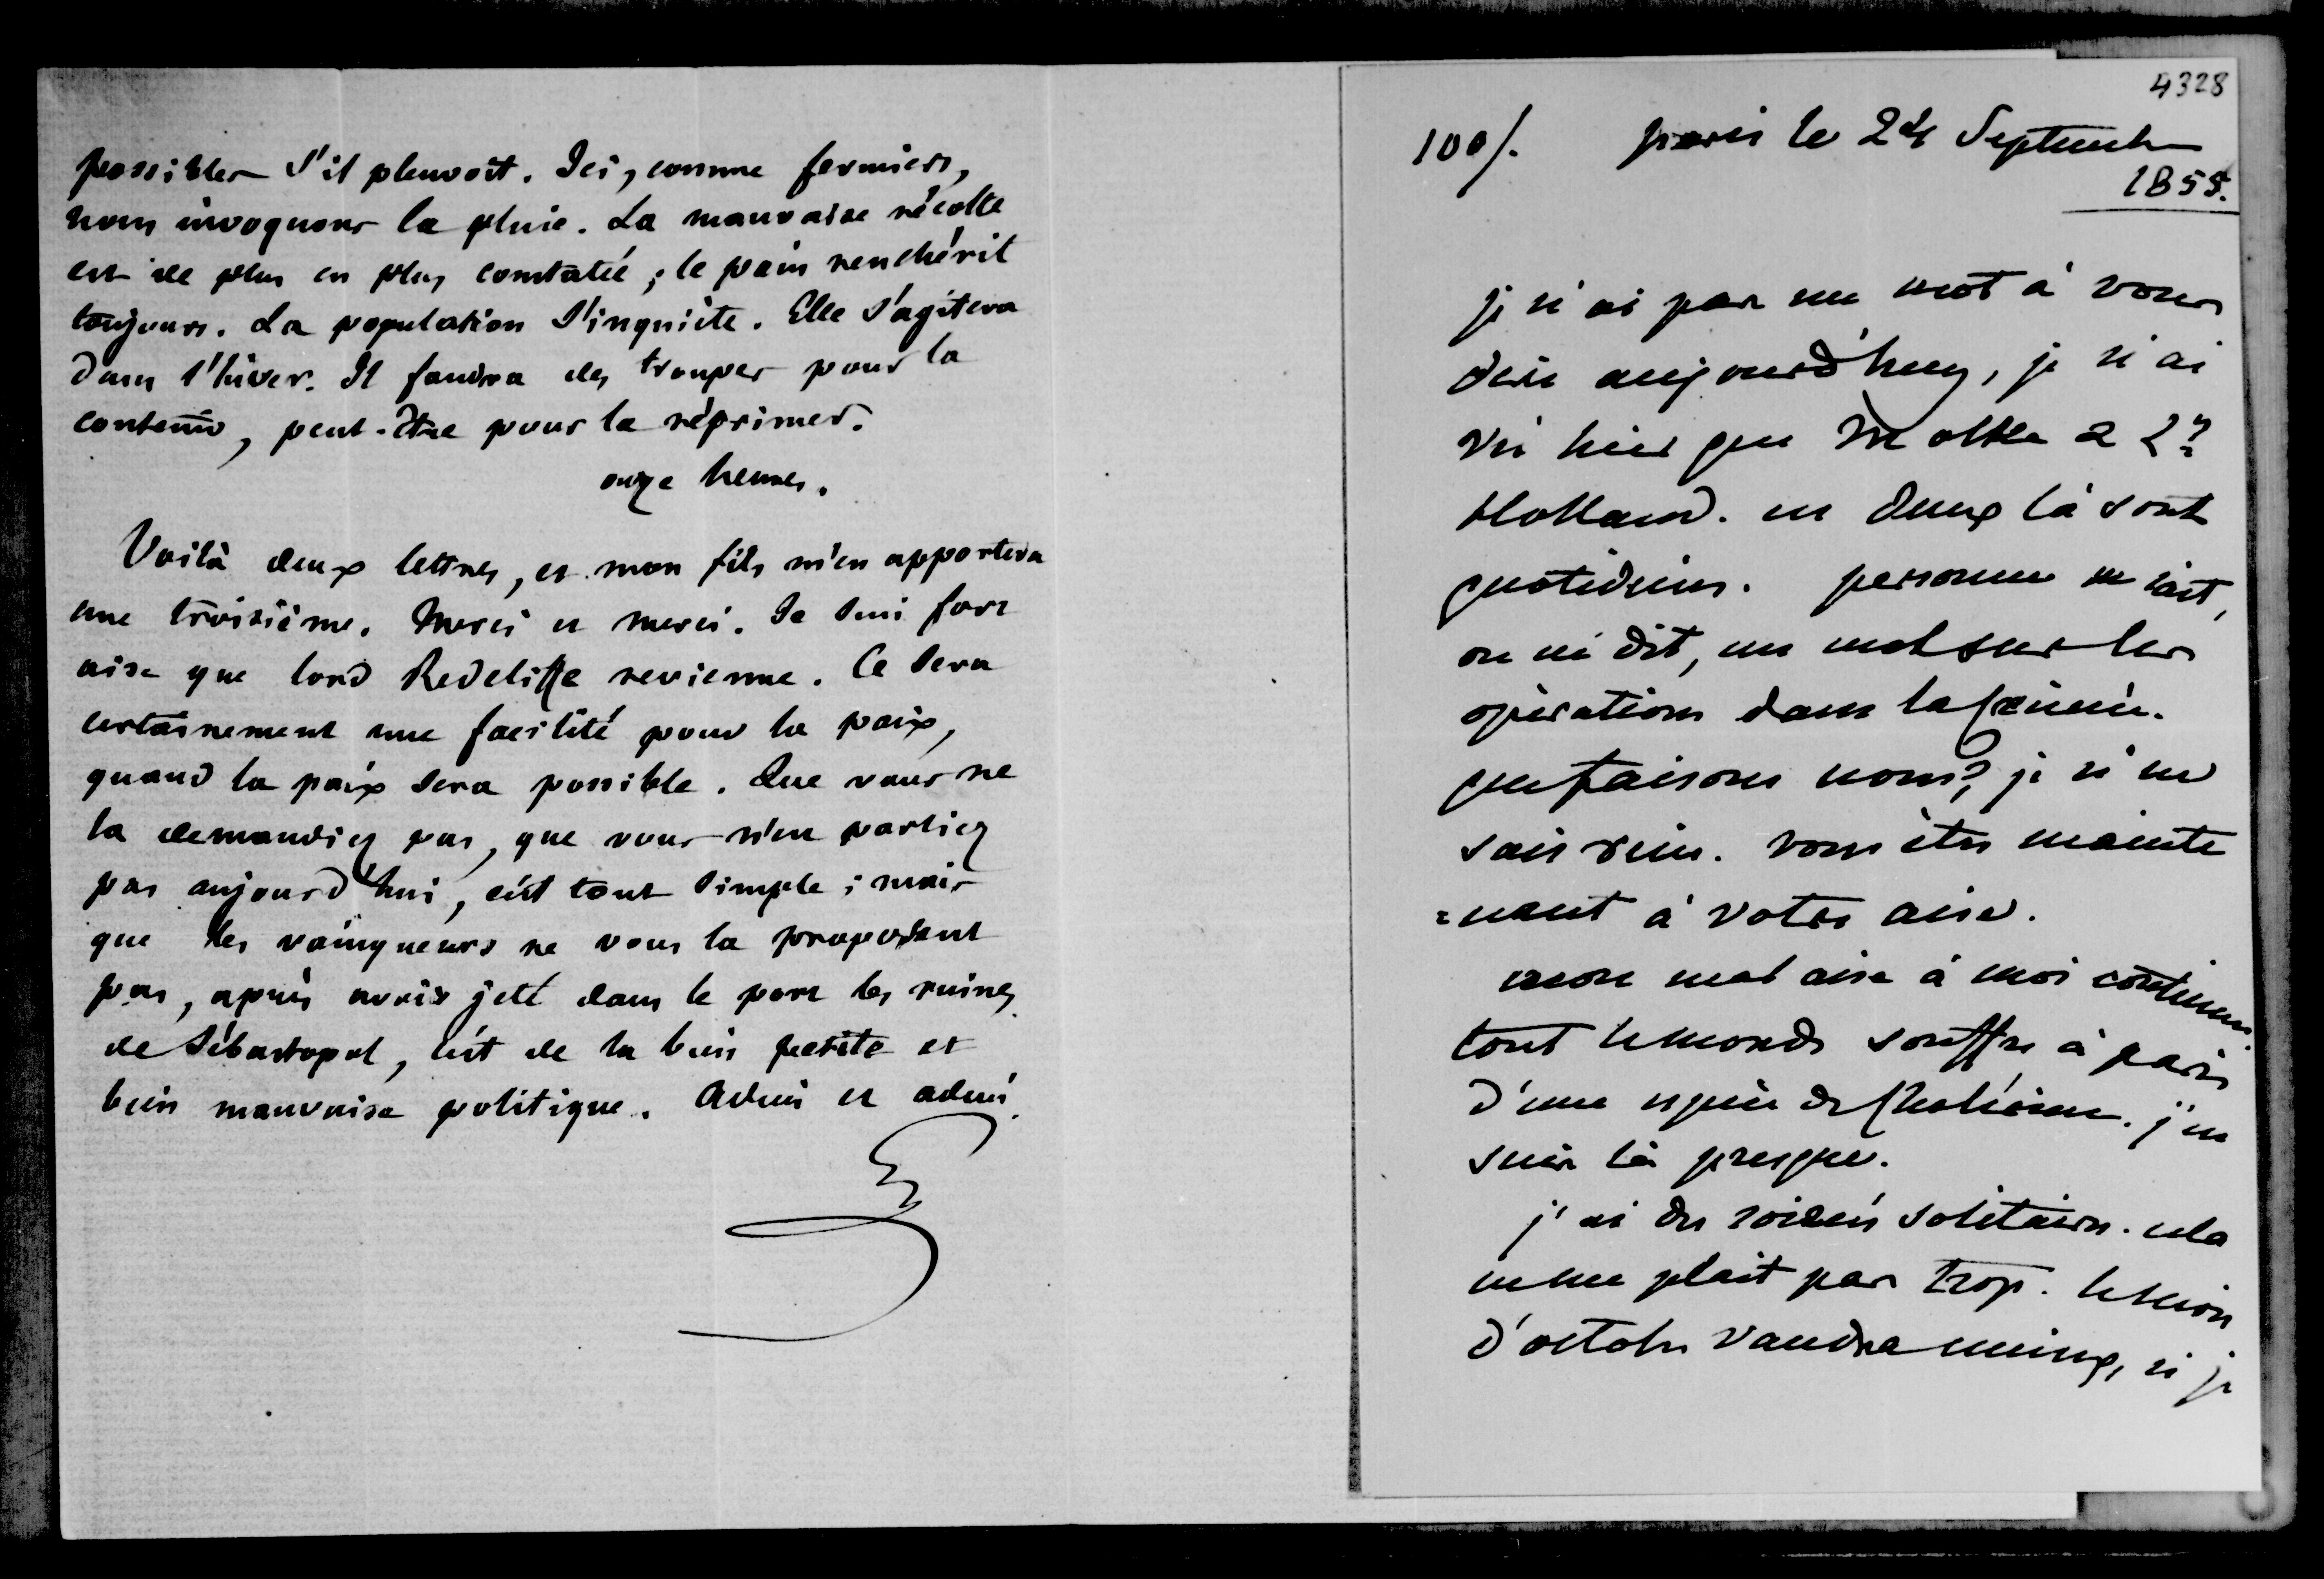 possibles s'il pleuvoit. Ici, comme fermiers,
nous invoquons la pluie. La mauvaise récolte
est de plus en plus constatée ; le pain renchérit
toujours. La population s'inquiète. Elle s'agitera
dans l'hiver. Il faudra des troupes pour la
contenir, peut-être pour la réprimer.
onze heures.
Voilà deux lettres, et mon fils m'en apportera
une troisième. Merci et merci. Je suis fort
aise que lord Redcliffe revienne. Ce sera
certainement une facilité pour la paix,
quand la paix sera possible. Que vous ne
la demandiez pas, que vous n'en parliez
pas aujourd'hui, c'est tout simple ; mais
que les vainqueurs ne vous la proposent
pas, après avoir jeté dans le port les ruines
de Sébastopol, c'est de la bien petite et
bien mauvaise politique. Adieu et adieu.
4328
100/. paris le 24 Septembre
1855.
je n'ai pas un mot à vous
dire aujourd'huy, je n'ai
vu hier que Molke &
Holland. ces deux là sont
quotidiens. personne ne sait,
ou ne dit, un mot sur les
opérations dans la Crimée.
que faisons nous? je n'en
sais rien. vous êtes mainte
=nant à votre aise.
mon mal aise à moi continue.
tout le monde souffre à paris
d'une espèce de cholérine. j'en
suis là presque.
j'ai des soirées solitaires. cela
ne me plait pas trop. le mois
d'octobre vaudra mieux, si je